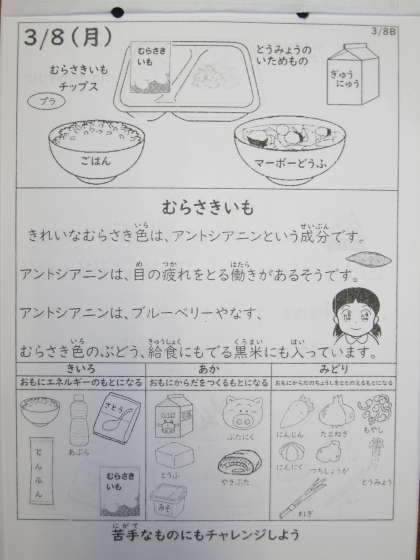 3/8(月)
3/8B
むらさきいも
チップス
プラ
むらさき
いも
とうみょうの
いためもの
ぎゅう
にゅう
ごはん
マーボーどうふ
むらさきいも
きれいなむらさき色は、アントシアニンという成分です。
いろ
せいぶん
アントシアニンは、目の疲れをとる働きがあるそうです。
め
つか
はたら
アントシアニンは、ブルーベリーやなす、
むらさき色のぶどう、給食にもでる黒米にも入っています。
いろ
きゅうしょく
くろまい
はい
きいろ
おもにエネルギーのもとになる
さとう
あぶら
でんぷん
むらさき
いも
あか
おもにからだをつくるもとになる
ぶたにく
とうふ
やきぶた
みそ
みどり
おもにからだのちょうしをととのえるもとになる
にんじん
たまねぎ
もやし
にんにく
つちしょうが
とうみょう
ねぎ
苦手なものにもチャレンジしよう
にがて